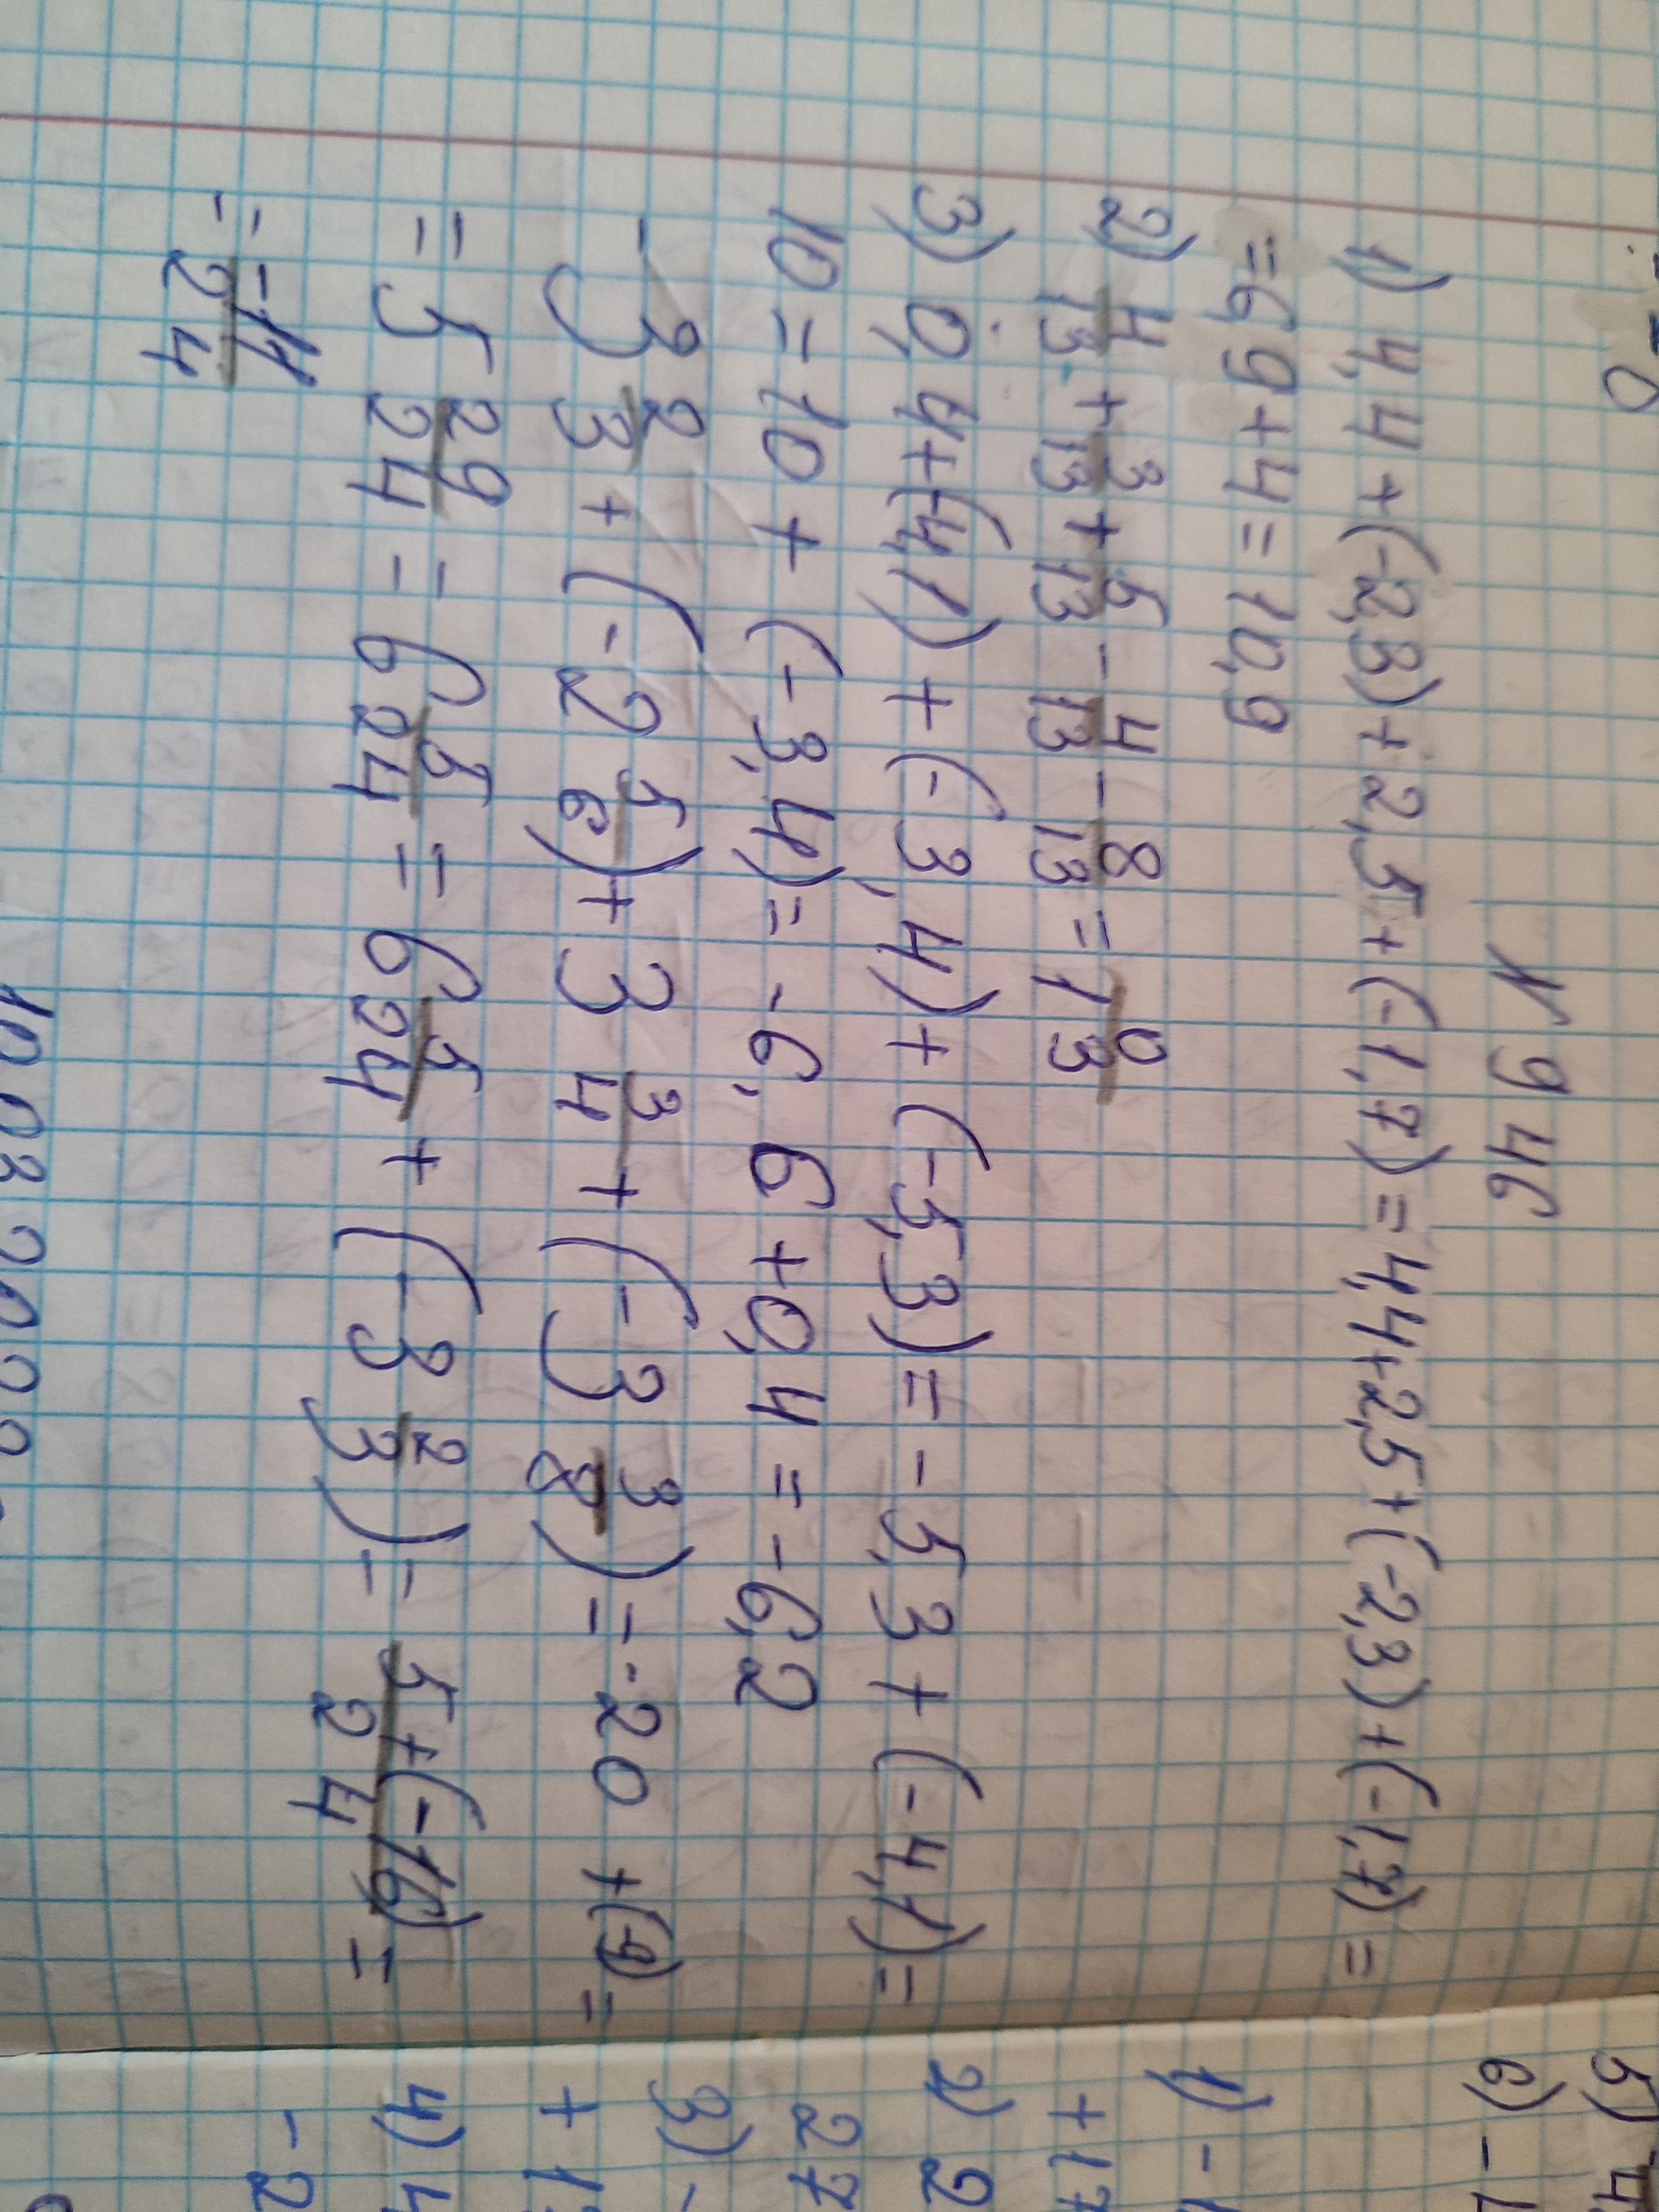 N 946
1) 4,4+(-2,3)+2,5+(-1,7)=4,4+2,5+(-2,3)+(-1,7)=
=6,9+4=10,9
2) 4/13+3/13+5/13-4/13-8/13=0/13
3) 0,4+(-4,1)+(-3,4)+(-5,3)=-5,3+(-4,1)=
10=10+(-3,4)=-6,6+0,4=-6,2
-3 2/3+(-2 5/6)+3 3/4+(-3 3/8)=-20+(-9)=
=5 29/24=-6 5/24=6 5/24+(-3 2/3)=5+(-16)/24=
=-11/24
-0
5)
6) -
1) -
+17
2) 2
27
3) -
+1
4) 4
-2